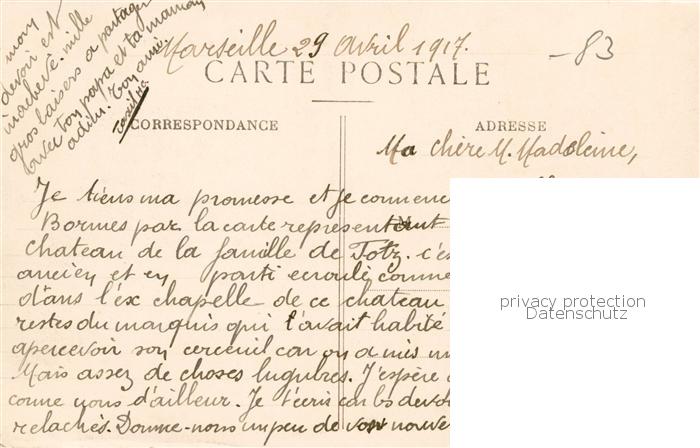 Marseille 29 avril 1917.
-83
CARTE POSTALE
CORRESPONDANCE
ADRESSE
Ma chère M. Madeleine,
Je tiens ma promesse et je commence
Bormes par la carte representant
chateau de la famille de Fôtz. c'es
ancien et en parti ecroulé comme
dans l'ex chapelle de ce chateau
restes du marquis qui l'avait habité
apercevoir son cerceuil car on a mis un
Mais assez de choses lugubres. J'espère
comme vous d'ailleur. Je t'ecris car les devoi
relachés. Donne-nous un peu de vos nouve
mon
devoir est
inachevé. mille
gros baisers a partager
avec ton papa et ta maman
adieu. Ton amie
privacy protection
Datenschutz